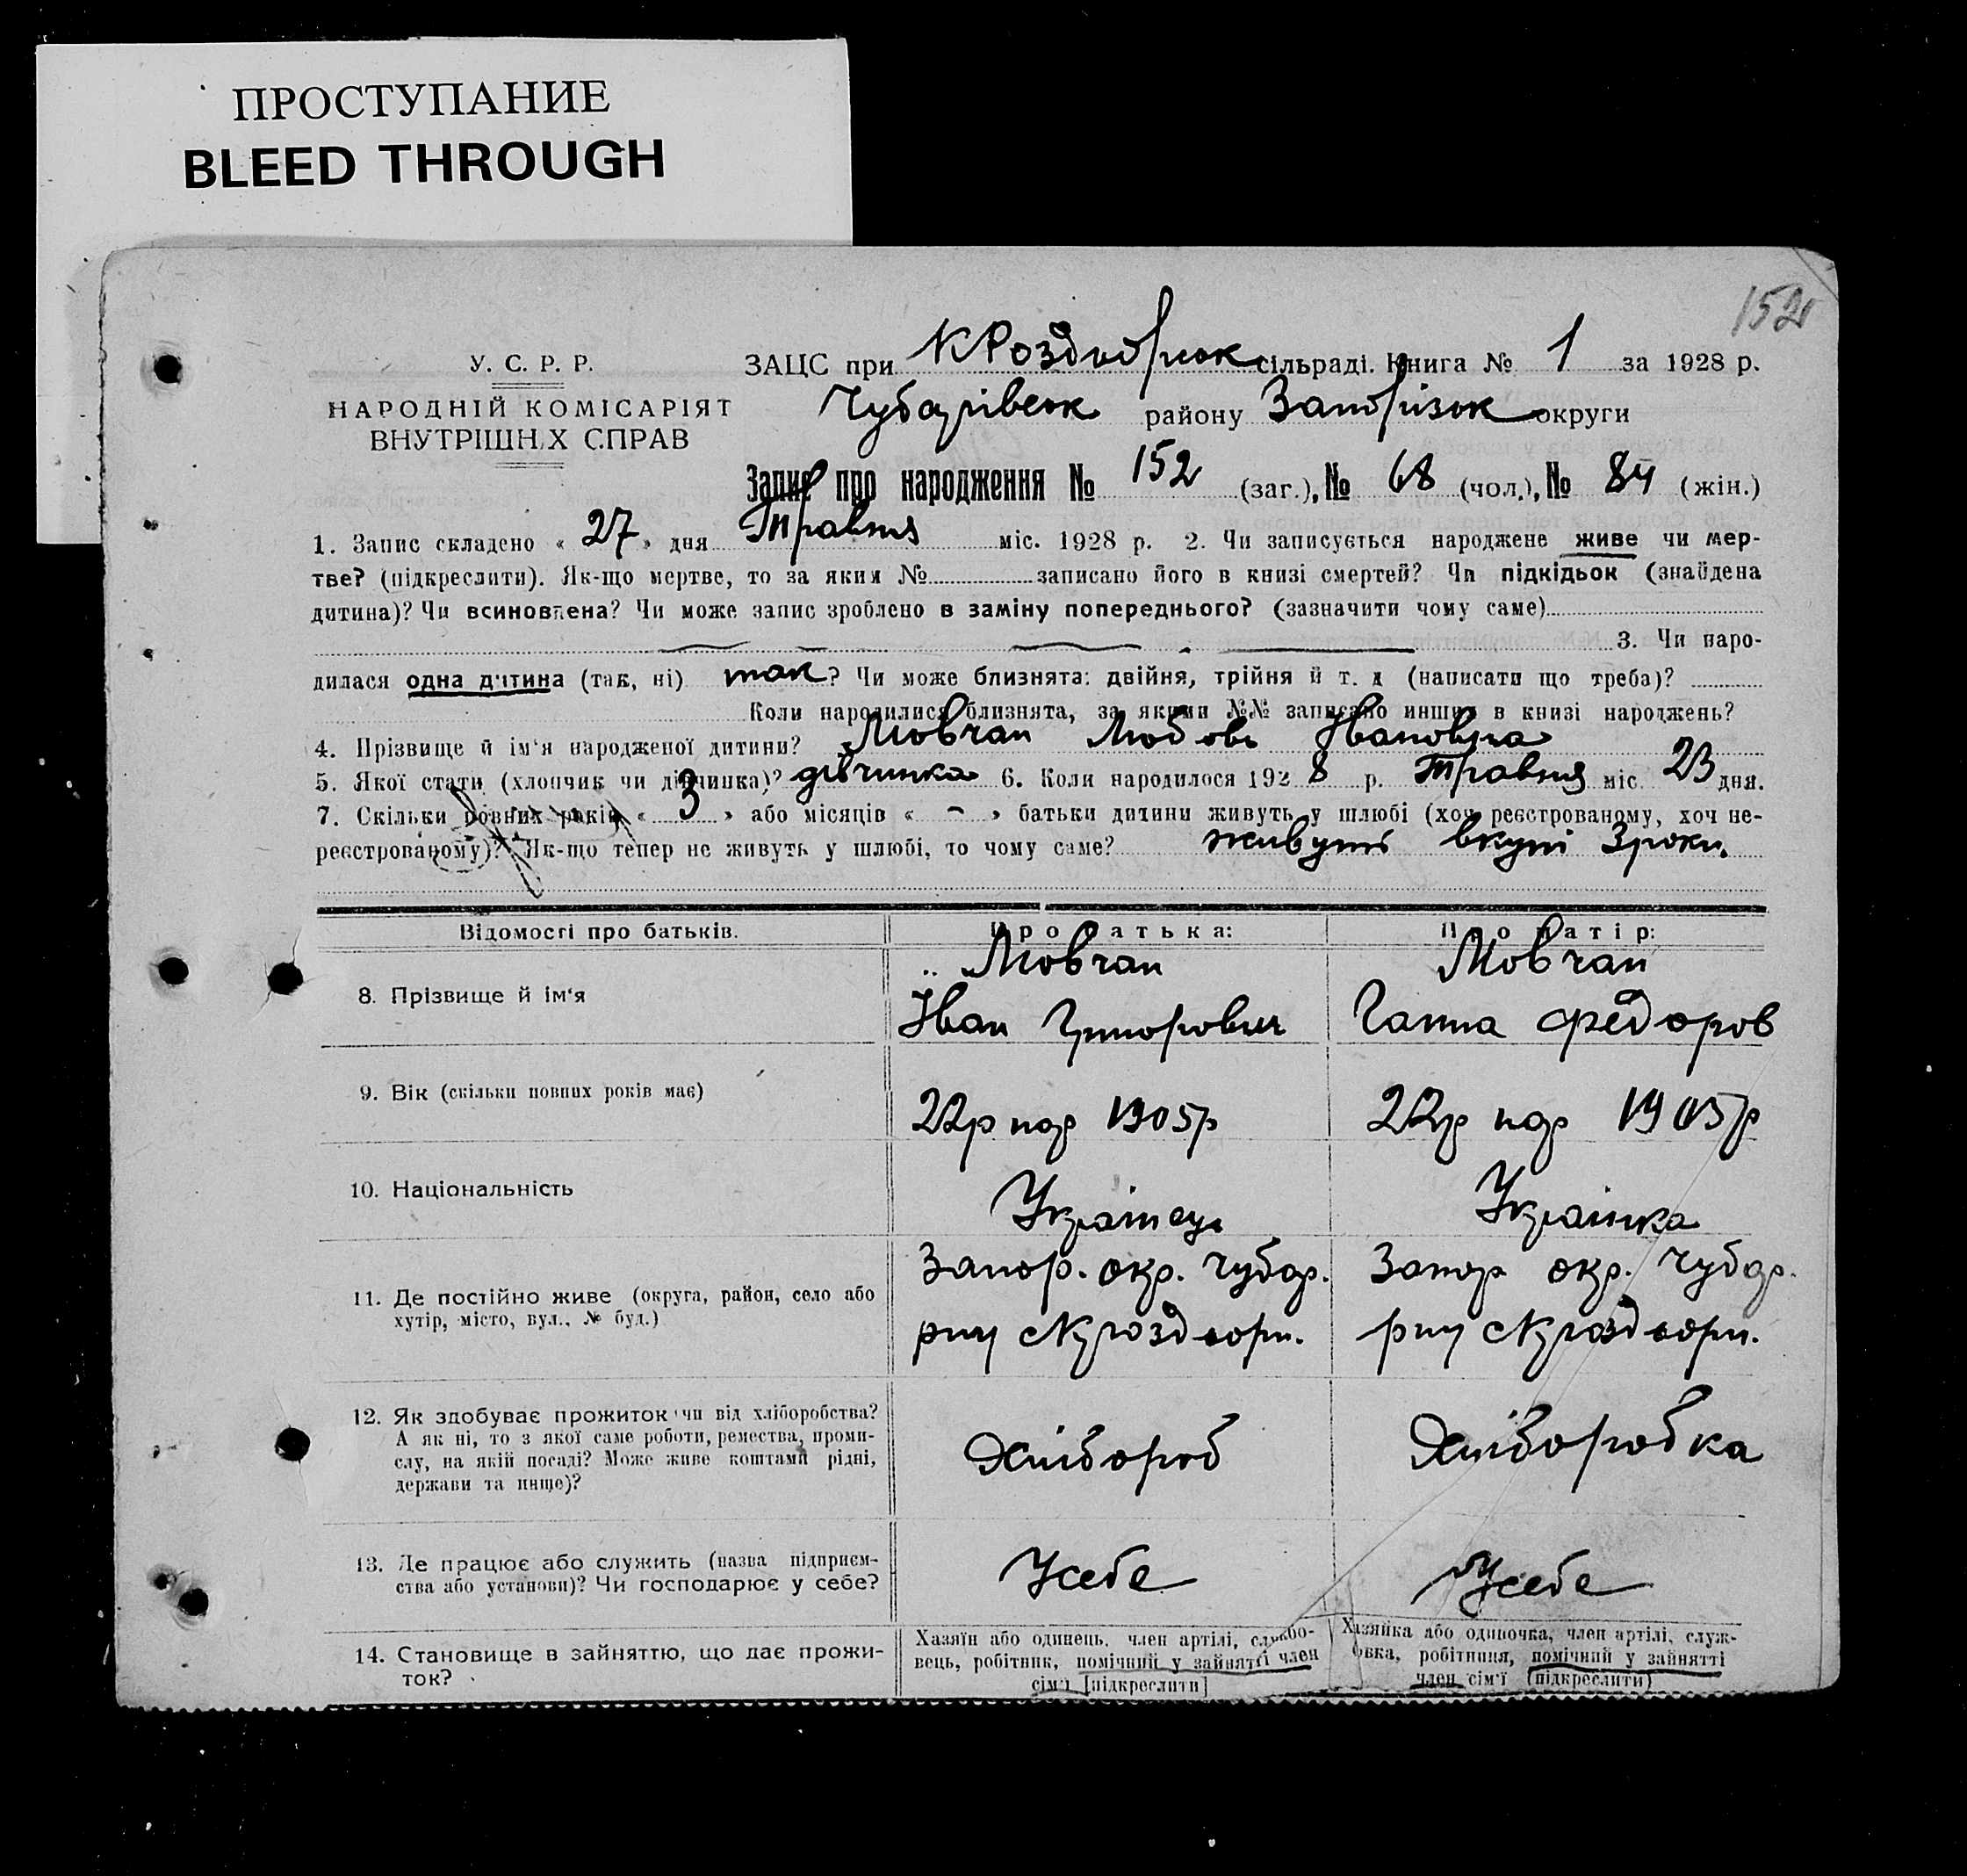 ПРОСТУПАНИЕ
BLEED THROUGH
152
У. С. Р. Р.
НАРОДНІЙ КОМІСАРІЯТ
ВНУТРІШНІХ СПРАВ
ЗАЦС при КРоздорськ сільраді. Книга № 1 за 1928 р.
Чубарівськ району Запорізьк округи
Запис про народження № 152 (заг.), № 68 (чол.), № 84 (жін.)
1. Запис складено « 27 » дня Травня міс. 1928 р. 2. Чи записується народжене живе чи мер-
тве? (підкреслити). Як-що мертве, то за яким № записано його в книзі смертей? Чи підкідьок (знайдена
дитина)? Чи всиновлена? Чи може запис зроблено в заміну попереднього? (зазначити чому саме)
3. Чи наро-
дилася одна дитина (так, ні) так ? Чи може близнята: двійня, трійня й т. д (написати що треба)?
Коли народилися близнята, за якими №№ записано инших в книзі народжень?
4. Прізвище й ім'я народженої дитини? Мовчан Любовь Івановна
5. Якої стати (хлопчик чи дівчинка)? дівчинка 6. Коли народилося 192 8 р. Травня міс. 23 дня.
7. Скільки повних років « 3 » або місяців « - » батьки дитини живуть у шлюбі (хоч реєстрованому, хоч не-
реєстрованому)? Як-що тепер не живуть у шлюбі, то чому саме? живуть вкупі 3 роки.
Відомості про батьків. Про батька: Про матір:
8. Прізвище й ім'я
Мовчан Мовчан
Іван Григорович Ганна Федоров
9. Вік (скільки повних років має)
22р нар 1905р 22р нар 1905р
10. Національність
Українець Українка
11. Де постійно живе (округа, район, село або
хутір, місто, вул., № буд.)
Запор. окр. Чубар. Запор окр. Чубар.
рну с Кроздори. рну с Кроздори.
12. Як здобуває прожиток чи від хліборобства?
А як ні, то з якої саме роботи, ремества, проми-
слу, на якій посаді? Може живе коштами рідні,
держави та инще)?
Хлібороб Хлібороб ка
13. Де працює або служить (назва підприєм-
ства або установи)? Чи господарює у себе?
Усебе Усебе
14. Становище в зайняттю, що дає прожи-
ток?
Хазяїн або одинець, член артілі, службо-
вець, робітник, помічний у зайнятті член
сім'ї [підкреслити]
Хазяйка або одиночка, член артілі, служ-
бовка, робітниця, помічний у зайнятті
член сім'ї (підкреслити)